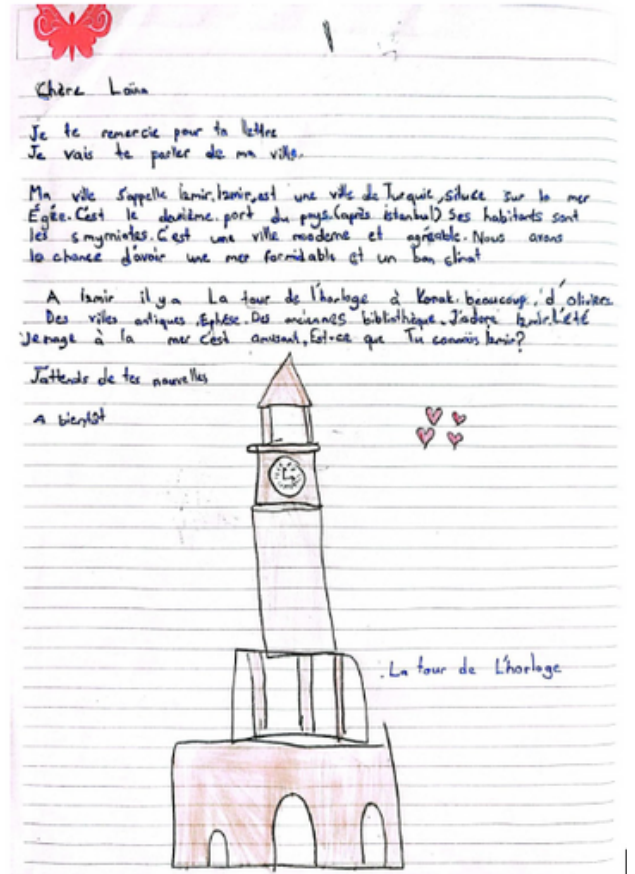 Chère Loïna
Je te remercie pour ta lettre
Je vais te parler de ma ville.
Ma ville s'appelle İzmir, İzmir, est une ville de Turquie, située sur la mer
Égée. C'est le deuxième. port du pays. (après istanbul) Ses habitants sont
les smyrniotes. C'est une ville moderne et agréable. Nous avons
la chance d'avoir une mer formidable et un bon climat
A İzmir il y a La tour de l'horloge à Konak. beaucoup. d'oliviers
Des villes antiques, Ephèse. Des anciennes bibliothèque. J'adore İzmir. L'été
Je nage à la mer c'est amusant, Est-ce que Tu connais İzmir?
J'attends de tes nouvelles
A bientôt
. La tour de L'horloge